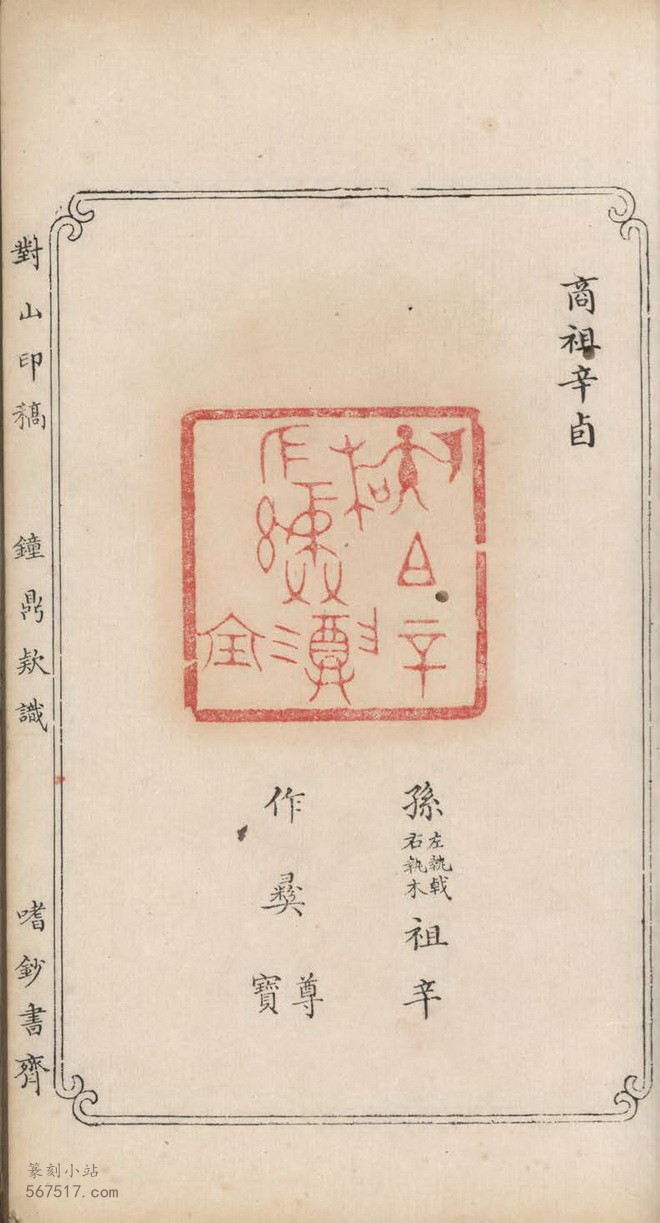 商祖辛卣
孫左執戟右執木祖辛
作彝尊寶
對山印稿 鐘鼎欵識 嗜鈔書齋
篆刻小站
567517.com